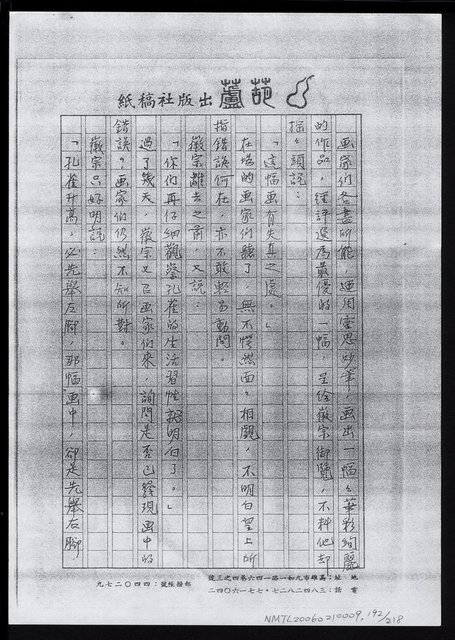 葫蘆出版社稿紙
画家们各盡所能，運用靈思妙筆，画出一幅々華彩絢麗
的作品，經評选為最優的一幅，呈给徽宗御覽，不料他却
摇々頭説：
「這幅画有失真之處。」
在場的画家们聽了，無不愕然面々相覷，不明白皇上所
指錯誤何在，亦不敢輕易動問。
徽宗離去之前，又説：
「你们再仔細觀察孔雀的生活習性就明白了。」
過了幾天，徽宗又召画家们來，詢問是否已發現画中的
錯誤？画家们仍然不知所對。
徽宗只好明説：
「孔雀升高，必先舉左脚，那幅画中，卻是先舉右脚
地址：高雄市九如一路一四六巷四之三號
電話：三八四二八二七·七七一六〇四二
郵撥帳號：四四〇二七九
NMTL20060210009, 192/218